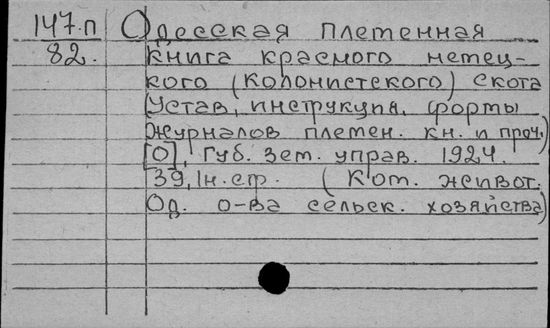 147.п Одесская племенная
82. книга красного немец-
кого (колонистского) скота
(устав, инструкция, формы
журналов племен. кн. и проч.)
[О], Губ. зем. управ. 1924.
39, 1н. ср. (Ком. живот.
Од. о-ва сельск. хозяйства)